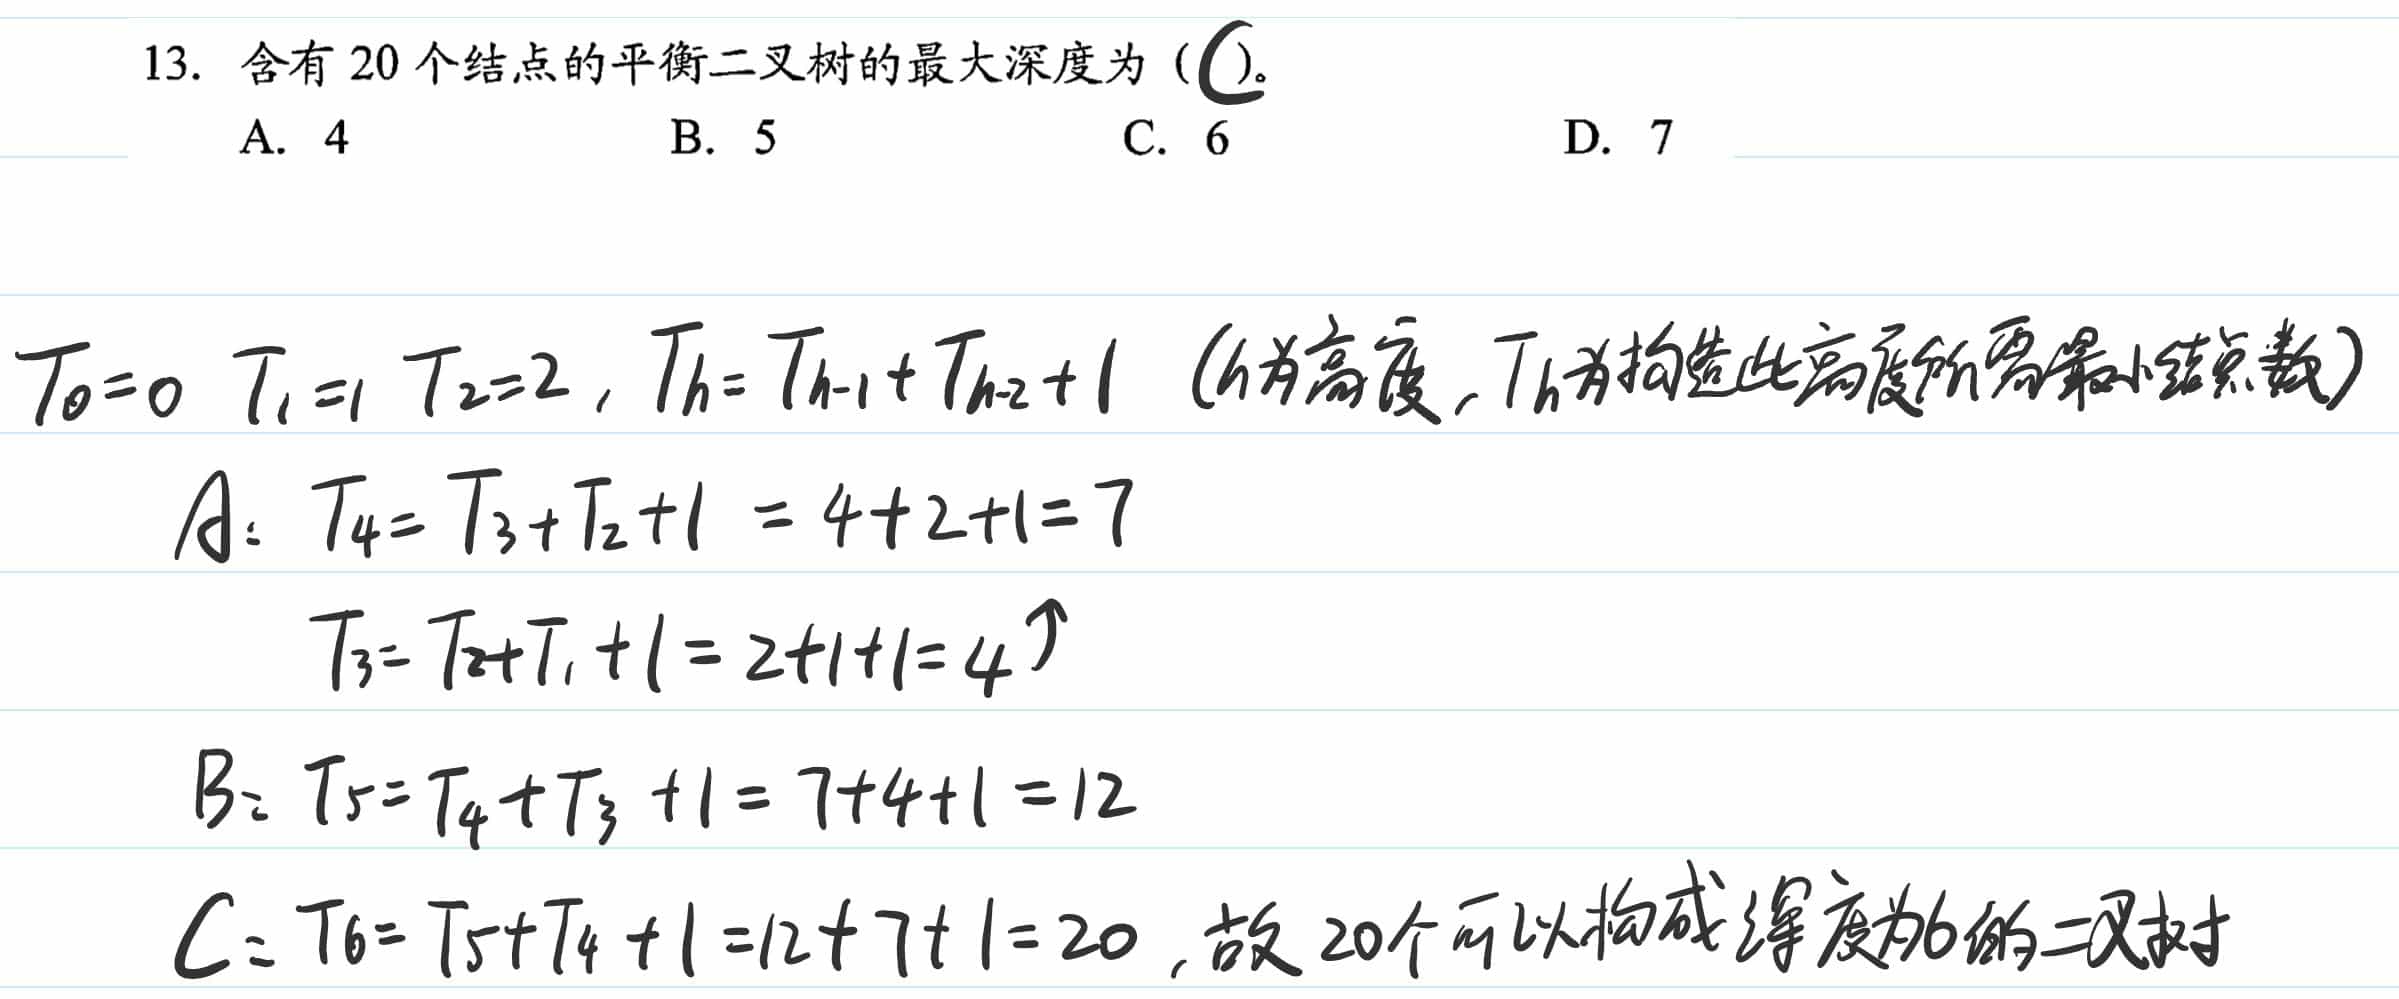 13. 含有 20 个结点的平衡二叉树的最大深度为（C）。
A. 4 B. 5 C. 6 D. 7
T₀=0 T₁=1 T₂=2, Tₕ=Tₕ₋₁+Tₕ₋₂+1 (h为高度,Tₕ为构造此高度所需最小结点数)
A: T₄=T₃+T₂+1 =4+2+1=7
T₃=T₂+T₁+1=2+1+1=4↑
B: T₅=T₄+T₃+1=7+4+1=12
C: T₆=T₅+T₄+1=12+7+1=20,故20个可以构成深度为6的二叉树